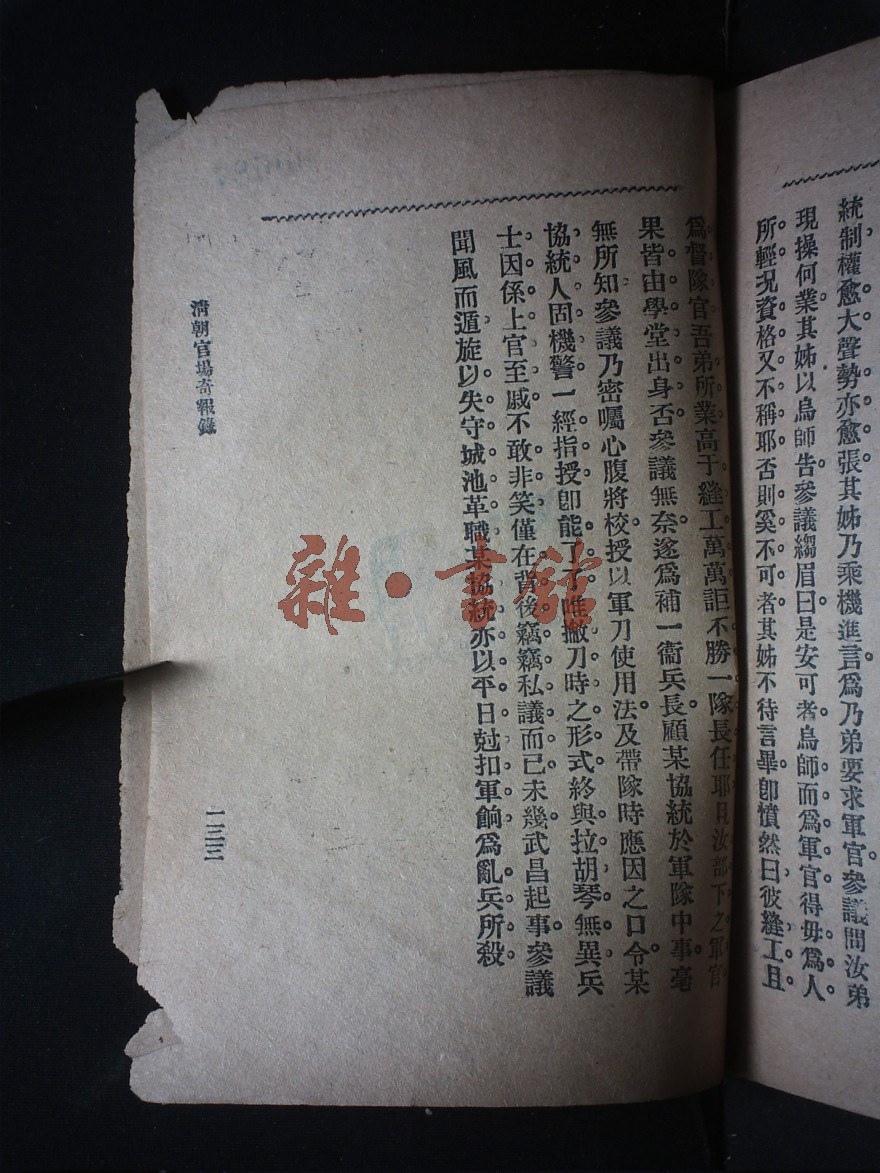 統制權愈大聲勢亦愈張其姊乃乘機進言爲乃弟要求軍官參議問汝弟
現操何業其姊以烏師告參議縐眉曰是安可者烏師而爲軍官得毋爲人
所輕況資格又不稱耶否則奚不可者其姊不待言畢卽憤然曰彼縫工且
爲督隊官吾弟所業高于縫工萬萬詎不勝一隊長任耶且汝部下之軍官
果皆由學堂出身否參議無奈遂爲補一衞兵長顧某協統於軍隊中事毫
無所知參議乃密囑心腹將校授以軍刀使用法及帶隊時應因之口令某
協統人固機警一經指授卽能了了唯撇刀時之形式終與拉胡琴無異兵
士因係上官至戚不敢非笑僅在背後竊竊私議而已未幾武昌起事參議
聞風而遁旋以失守城池革職某協統亦以平日尅扣軍餉爲亂兵所殺
清朝官場奇報錄
一三三
雜·書館